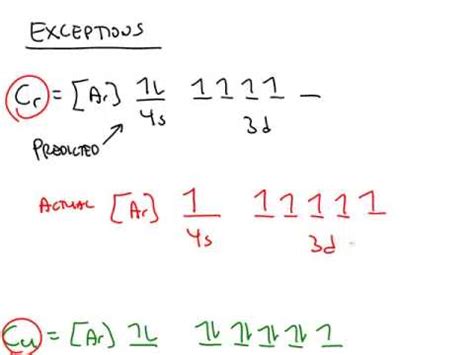 EXCEPTIONS
Cr = [Ar] 1L 1 1 1 1 _
4s 3d
PREDICTED
ACTUAL [Ar] 1 1 1 1 1 1
4s 3d
Cu = [Ar] 1L 1L 1L 1L 1L 1